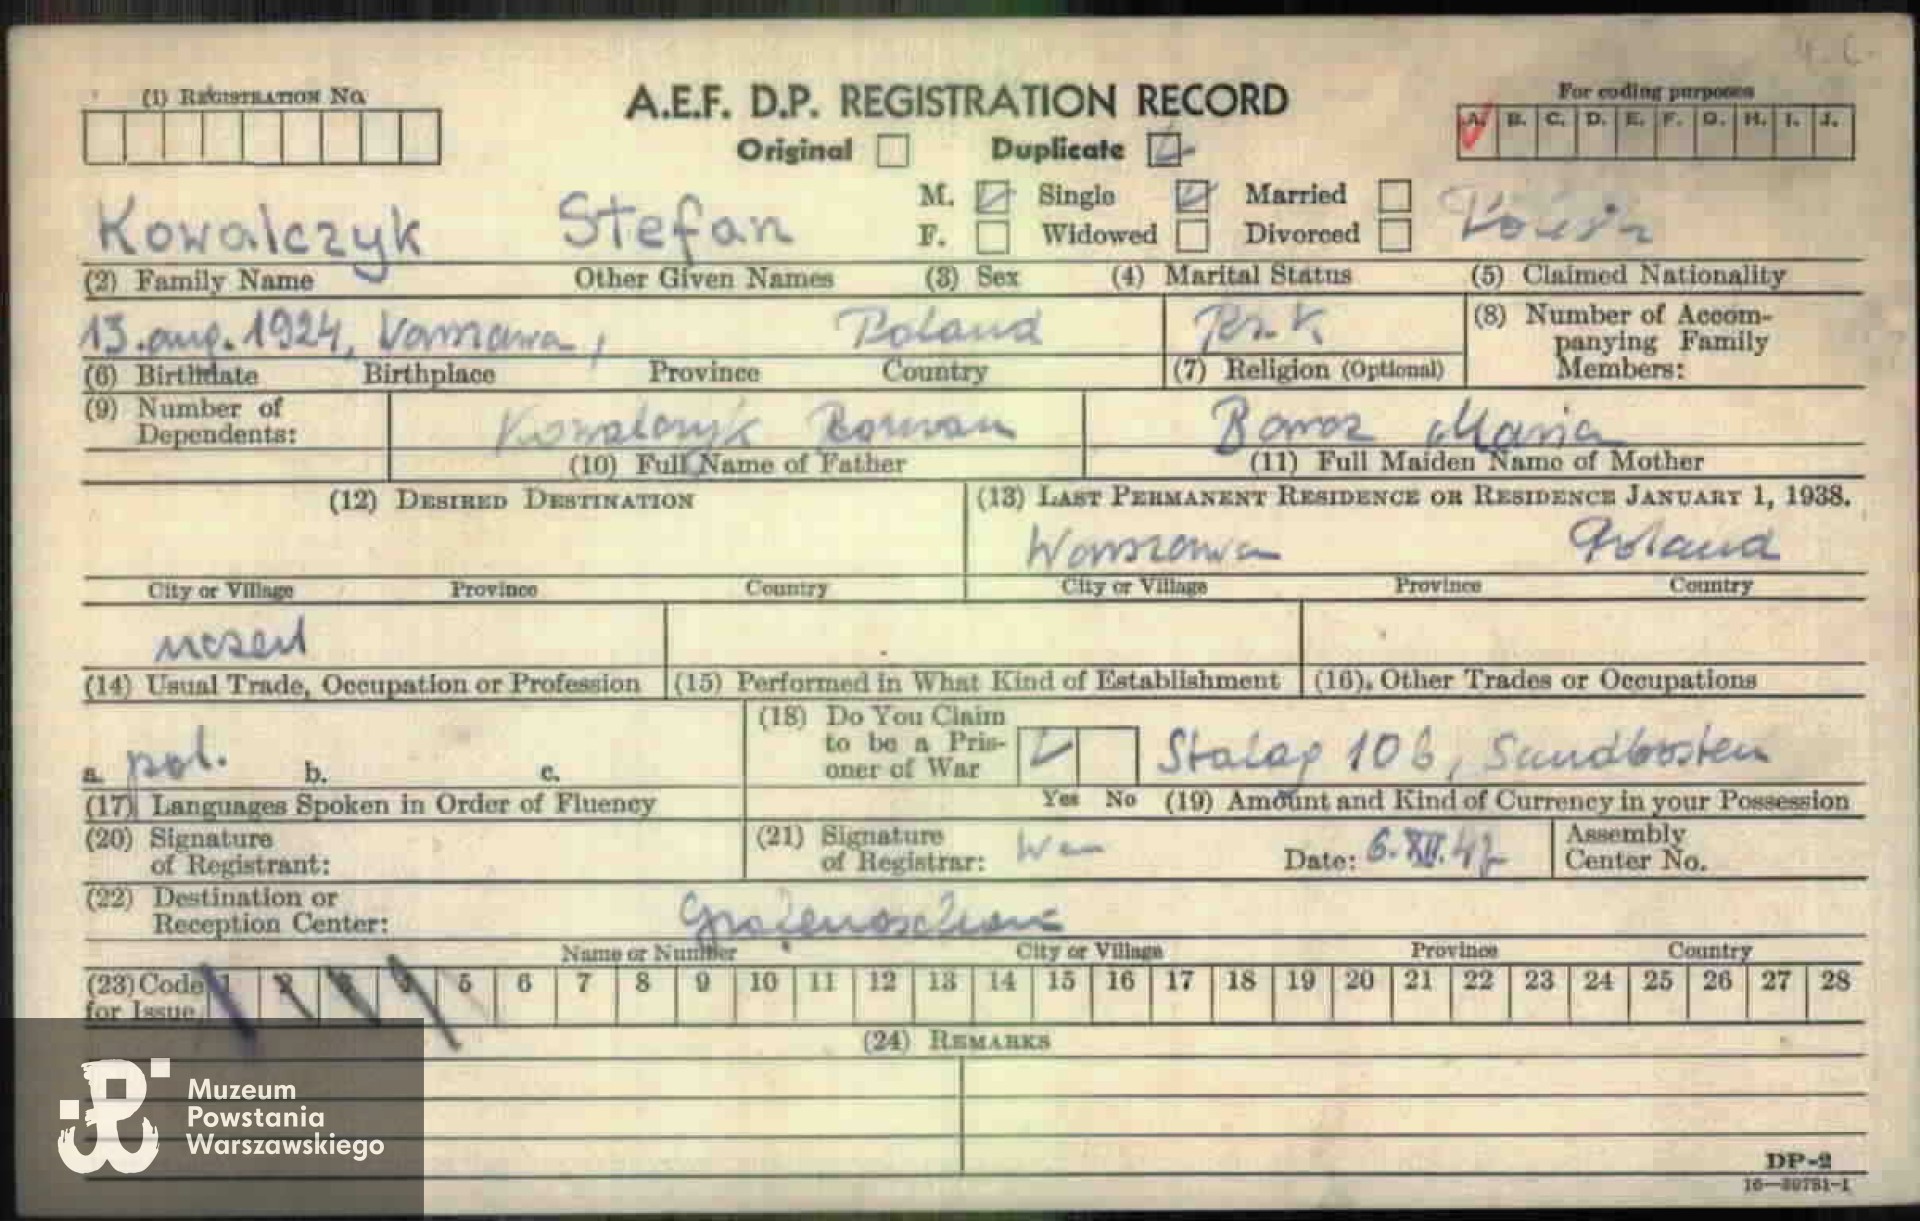 (1) REGISTRATION No.
A.E.F. D.P. REGISTRATION RECORD
For coding purposes
Original Duplicate
A. B. C. D. E. F. G. H. I. J.
M. Single Married
Kowalczyk Stefan
F. Widowed Divorced
(2) Family Name Other Given Names (3) Sex (4) Marital Status (5) Claimed Nationality
13. aug. 1924, Warszawa, Poland
(8) Number of Accompanying Family Members:
(6) Birthdate Birthplace Province Country (7) Religion (Optional)
(9) Number of Dependents:
Kowalczyk Roman Maria
(10) Full Name of Father (11) Full Maiden Name of Mother
(12) DESIRED DESTINATION (13) LAST PERMANENT RESIDENCE OR RESIDENCE JANUARY 1, 1938.
Warszawa Poland
City or Village Province Country City or Village Province Country
(14) Usual Trade, Occupation or Profession (15) Performed in What Kind of Establishment (16) Other Trades or Occupations
(18) Do You Claim to be a Prisoner of War
a. pol. b. c.
Stalag 10 b, Sandbosten
Yes No
(17) Languages Spoken in Order of Fluency (19) Amount and Kind of Currency in your Possession
(20) Signature of Registrant:
(21) Signature of Registrar:
Date: 6.XII.47
Assembly Center No.
(22) Destination or Reception Center:
Name or Number City or Village Province Country
(23) Code for Issue 1 2 3 4 5 6 7 8 9 10 11 12 13 14 15 16 17 18 19 20 21 22 23 24 25 26 27 28
(24) REMARKS
Muzeum
Powstania
Warszawskiego
DP-2
16—39781-1